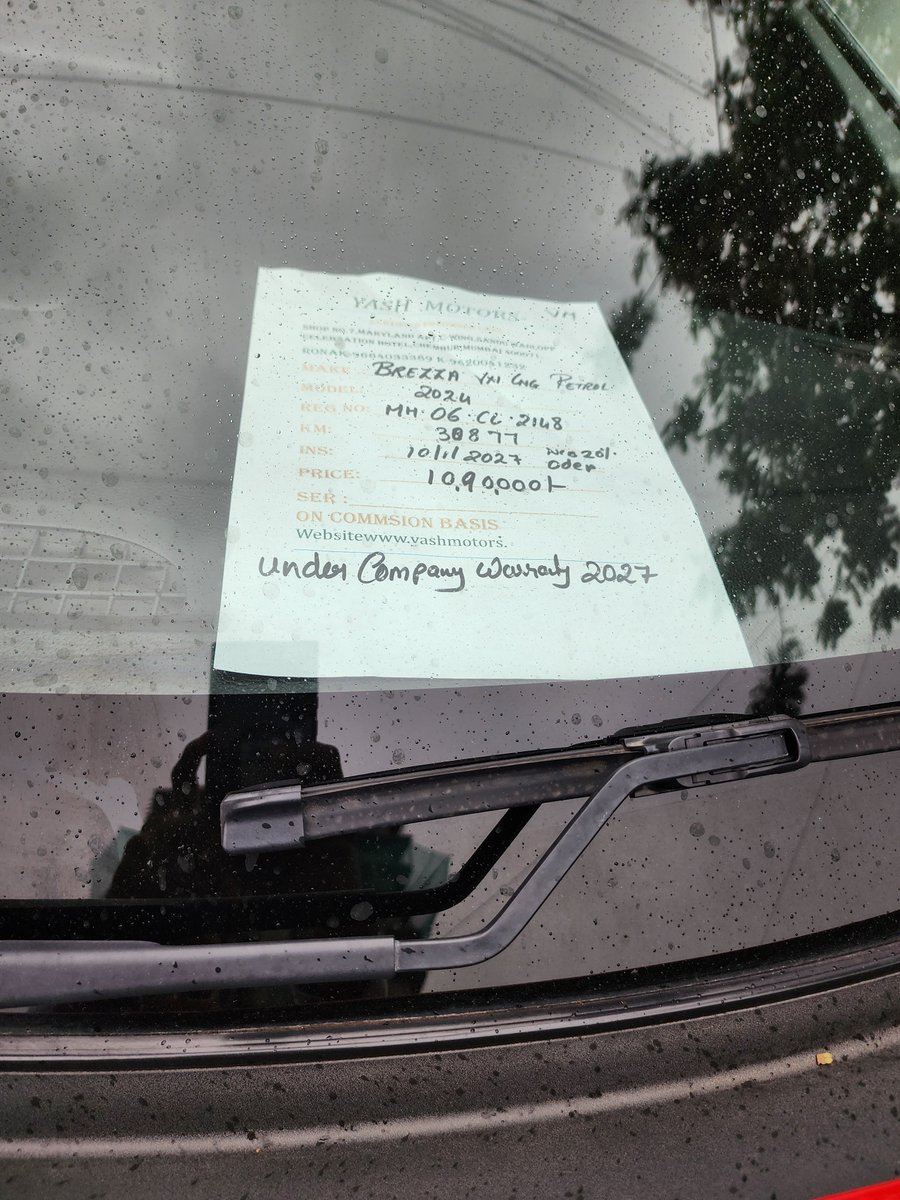 YASH MOTORS VM
SHOP NO.7, MARYLAND APT,C-WING,SANDU WADI,OPP
CELEBRATION HOTEL, CHEMBUR,MUMBAI 400071.
RONAK
MAKE: BREZZA VXI CNG PETROL
MODEL: 2024
REG NO: MH·06·CL·2148
KM: 30877
INS: 10/1/2027
PRICE: 10,90,000/-
SER :
ON COMMSION BASIS
Websitewww.yashmotors.
Under Company Warranty 2027